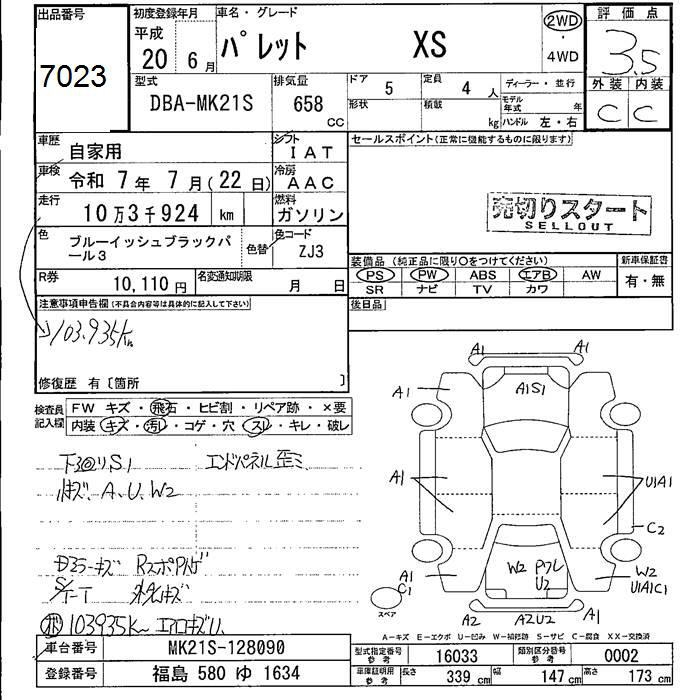 出品番号
7023
初度登録年月
平成
20年 6月
車名・グレード
パレット XS
2WD
・
4WD
評価点
3.5
外装 内装
C C
型式
DBA-MK21S
排気量
658 CC
ドア 5
定員 4 人
形状
積載 kg
ディーラー・並行
モデル年式 年
ハンドル 左・右
車歴
自家用
シフト
IAT
車検
令和 7年 7月(22日)
冷房
AAC
走行
10万3千924 km
燃料
ガソリン
色
ブルーイッシュブラックパール3
色替
色コード
ZJ3
R券
10,110円
名変通知期限
月 日
セールスポイント(正常に機能するものに限ります)
売切りスタート
SELLOUT
装備品(純正品に限り○をつけてください)
PS PW ABS エアB AW
SR ナビ TV カワ
新車保証書
有・無
後日品
注意事項申告欄(不具合内容等は具体的に記入して下さい)
→103.935Km
修復歴 有〔箇所 〕
検査員記入欄
FW キズ・飛石・ヒビ割・リペア跡・×要
内装 キズ・汚レ・コゲ・穴・スレ・キレ・破レ
S1 エンドパネル歪ミ
キズ、A、U、W2
キズ
103935K エアロキズU
A1 A1
A1 A1S1
A1 U1A1
C2
A1 C1
W2 U2
W2
U1A1C1
スペア
A2 A2U2 A1
A-キズ E-エクボ U-凹み W-補修跡 S-サビ C-腐食 XX-交換済
車台番号 MK21S-128090
登録番号 福島 580 ゆ 1634
型式指定番号 参考 16033
類別区分番号 参考 0002
車庫証明用 参考 長さ 339cm 幅 147cm 高さ 173cm